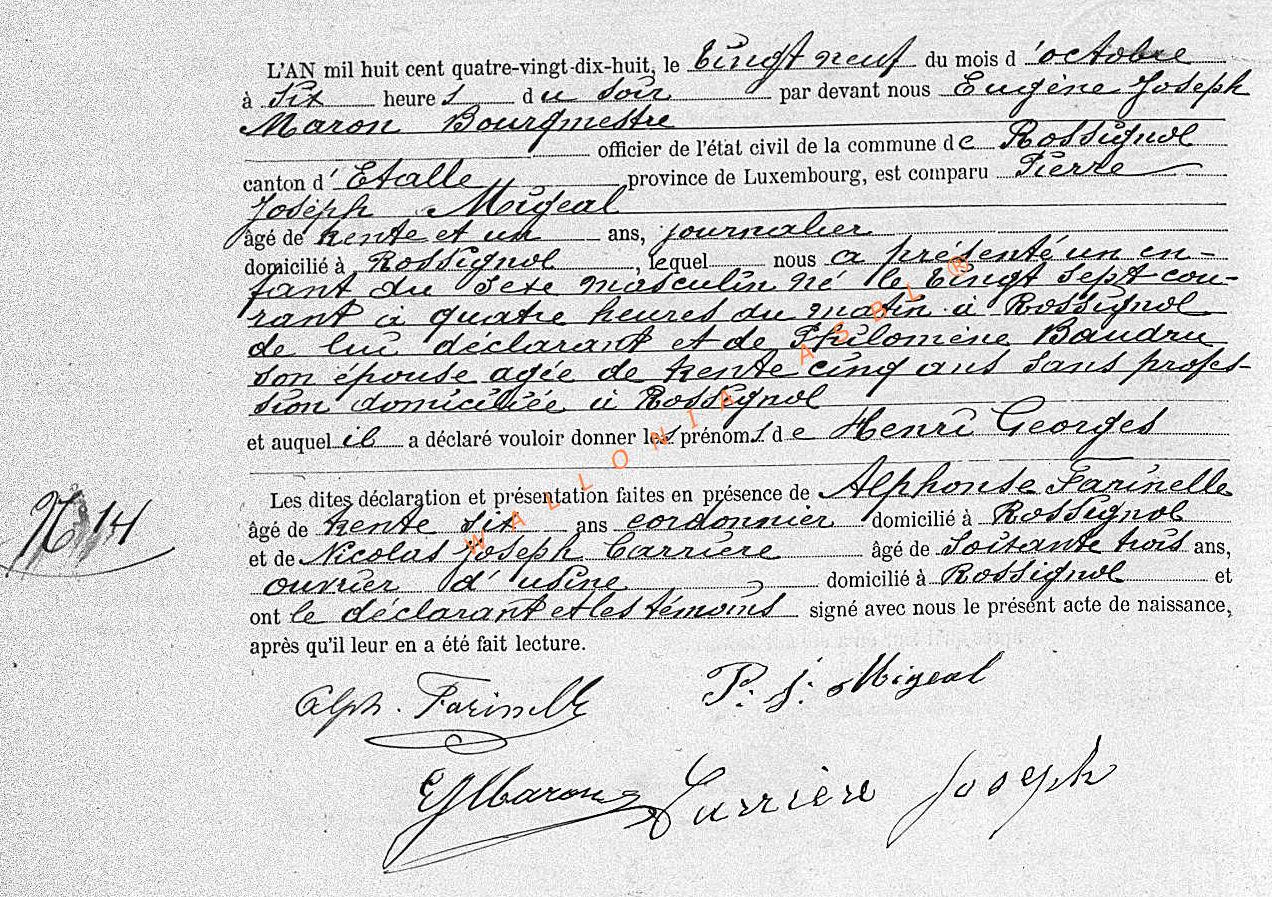 L'AN mil huit cent quatre-vingt-dix-huit, le Vingt neuf du mois d'octobre
à six heures du soir par devant nous Eugène Joseph
Maron Bourgmestre
officier de l'état civil de la commune de Rossignol
canton d'Etalle province de Luxembourg, est comparu Pierre
Joseph Migeal
âgé de trente et un ans, journalier
domicilié à Rossignol, lequel nous a présenté un en-
fant du sexe masculin né le Vingt sept cou-
rant à quatre heures du matin à Rossignol
de lui déclarant et de Philomène Baudru
son épouse agée de trente cinq ans sans profes-
sion domiciliée à Rossignol
et auquel il a déclaré vouloir donner les prénoms de Henri Georges
Les dites déclaration et présentation faites en présence de Alphonse Farinelle
âgé de trente six ans cordonnier domicilié à Rossignol
N 14
et de Nicolas Joseph Carrière âgé de soixante trois ans,
ouvrier d'usine domicilié à Rossignol et
ont le déclarant et les témoins signé avec nous le présent acte de naissance,
après qu'il leur en a été fait lecture.
Alph. Farinelle P. J. Migeal
EJMaron Carrière Joseph
WALLONIA ASBL ®